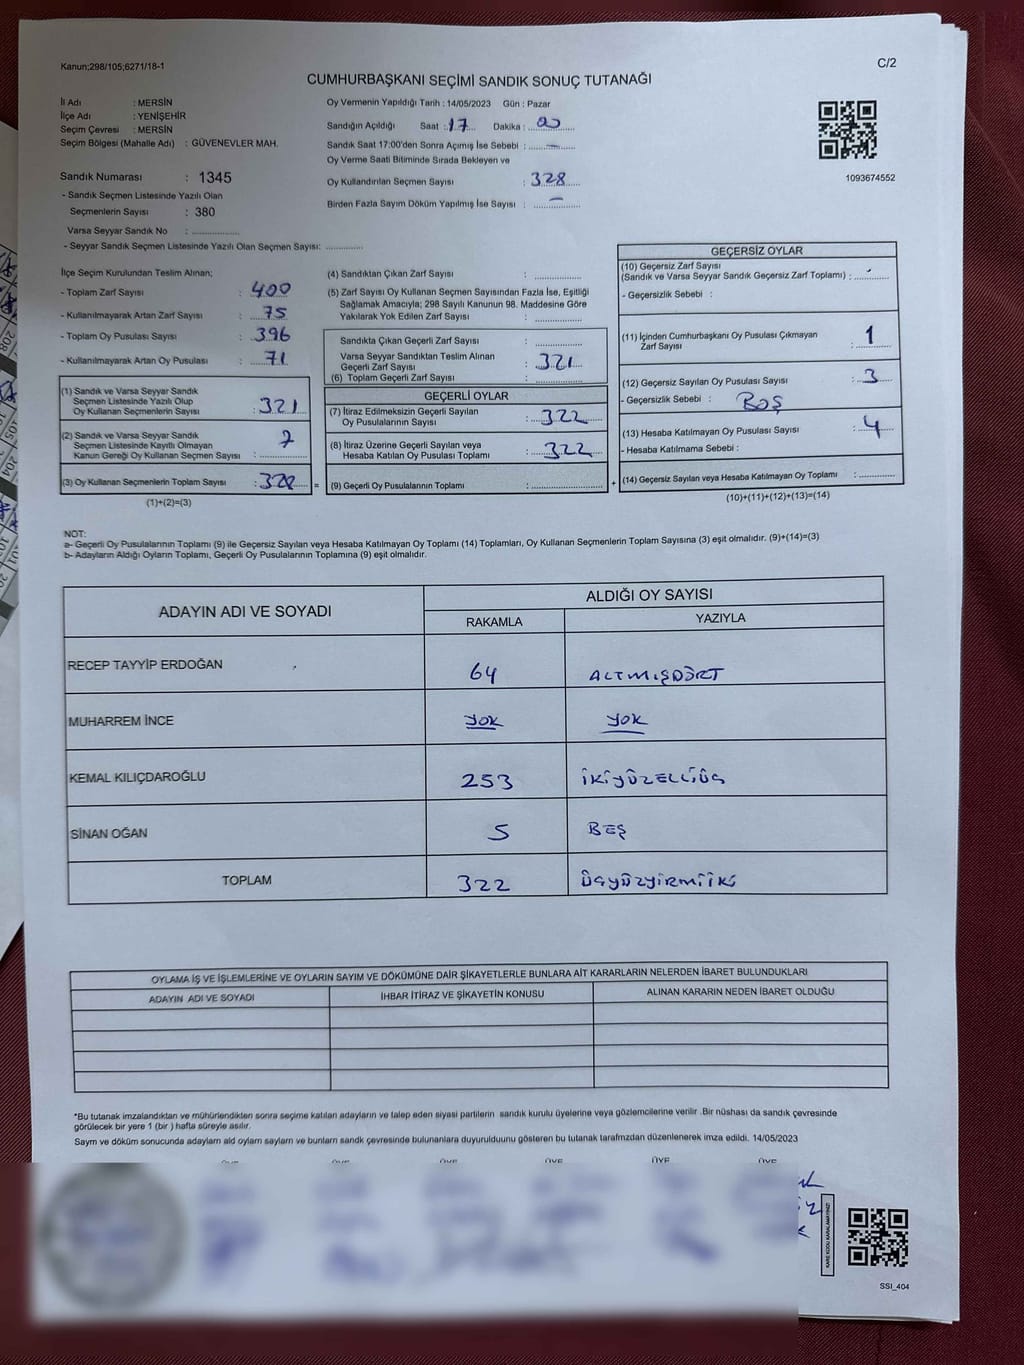 Kanun;298/105;6271/18-1
C/2
CUMHURBAŞKANI SEÇİMİ SANDIK SONUÇ TUTANAĞI
İl Adı : MERSİN
İlçe Adı : YENİŞEHİR
Seçim Çevresi : MERSİN
Seçim Bölgesi (Mahalle Adı) : GÜVENEVLER MAH.
Sandık Numarası : 1345
- Sandık Seçmen Listesinde Yazılı Olan
Seçmenlerin Sayısı : 380
Varsa Seyyar Sandık No : ................
- Seyyar Sandık Seçmen Listesinde Yazılı Olan Seçmen Sayısı: .............
Oy Vermenin Yapıldığı Tarih : 14/05/2023 Gün : Pazar
Sandığın Açıldığı Saat : 17 Dakika : 00
Sandık Saat 17:00'den Sonra Açımış İse Sebebi : —
Oy Verme Saati Bitiminde Sırada Bekleyen ve
Oy Kullandırılan Seçmen Sayısı : 328
Birden Fazla Sayım Döküm Yapılmış İse Sayısı : —
1093674552
İlçe Seçim Kurulundan Teslim Alınan;
- Toplam Zarf Sayısı : 400
- Kullanılmayarak Artan Zarf Sayısı : 75
- Toplam Oy Pusulası Sayısı : 396
- Kullanılmayarak Artan Oy Pusulası : 71
(1) Sandık ve Varsa Seyyar Sandık
Seçmen Listesinde Yazılı Olup
Oy Kullanan Seçmenlerin Sayısı : 321
(2) Sandık ve Varsa Seyyar Sandık
Seçmen Listesinde Kayıtlı Olmayan
Kanun Gereği Oy Kullanan Seçmen Sayısı : 7
(3) Oy Kullanan Seçmenlerin Toplam Sayısı : 328 =
(1)+(2)=(3)
(4) Sandıktan Çıkan Zarf Sayısı : .............
(5) Zarf Sayısı Oy Kullanan Seçmen Sayısından Fazla İse, Eşitliği
Sağlamak Amacıyla; 298 Sayılı Kanunun 98. Maddesine Göre
Yakılarak Yok Edilen Zarf Sayısı : .............
Sandıkta Çıkan Geçerli Zarf Sayısı : .............
Varsa Seyyar Sandıktan Teslim Alınan
Geçerli Zarf Sayısı : 321
(6) Toplam Geçerli Zarf Sayısı : .............
GEÇERLİ OYLAR
(7) İtiraz Edilmeksizin Geçerli Sayılan
Oy Pusulalarının Sayısı : 322
(8) İtiraz Üzerine Geçerli Sayılan veya
Hesaba Katılan Oy Pusulası Toplamı : 322
(9) Geçerli Oy Pusulalarının Toplamı : ............. +
GEÇERSİZ OYLAR
(10) Geçersiz Zarf Sayısı
(Sandık ve Varsa Seyyar Sandık Geçersiz Zarf Toplamı) : .............
- Geçersizlik Sebebi :
(11) İçinden Cumhurbaşkanı Oy Pusulası Çıkmayan
Zarf Sayısı : 1
(12) Geçersiz Sayılan Oy Pusulası Sayısı : 3
- Geçersizlik Sebebi : BOŞ
(13) Hesaba Katılmayan Oy Pusulası Sayısı : 4
- Hesaba Katılmama Sebebi :
(14) Geçersiz Sayılan veya Hesaba Katılmayan Oy Toplamı : .............
(10)+(11)+(12)+(13)=(14)
NOT:
a- Geçerli Oy Pusulalarının Toplamı (9) ile Geçersiz Sayılan veya Hesaba Katılmayan Oy Toplamı (14) Toplamları, Oy Kullanan Seçmenlerin Toplam Sayısına (3) eşit olmalıdır. (9)+(14)=(3)
b- Adayların Aldığı Oyların Toplamı, Geçerli Oy Pusulalarının Toplamına (9) eşit olmalıdır.
ADAYIN ADI VE SOYADI
ALDIĞI OY SAYISI
RAKAMLA YAZIYLA
RECEP TAYYİP ERDOĞAN 64 ALTMIŞDÖRT
MUHARREM İNCE YOK YOK
KEMAL KILIÇDAROĞLU 253 İKİYÜZELLİÜÇ
SİNAN OĞAN 5 BEŞ
TOPLAM 322 ÜÇYÜZYİRMİİKİ
OYLAMA İŞ VE İŞLEMLERİNE VE OYLARIN SAYIM VE DÖKÜMÜNE DAİR ŞİKAYETLERLE BUNLARA AİT KARARLARIN NELERDEN İBARET BULUNDUKLARI
ADAYIN ADI VE SOYADI İHBAR İTİRAZ VE ŞİKAYETİN KONUSU ALINAN KARARIN NEDEN İBARET OLDUĞU
*Bu tutanak imzalandıktan ve mühürlendikten sonra seçime katılan adayların ve talep eden siyasi partilerin sandık kurulu üyelerine veya gözlemcilerine verilir .Bir nüshası da sandık çevresinde
görülecek bir yere 1 (bir ) hafta süreyle asılır.
Sayım ve döküm sonucunda adayların ald oyların sayların ve bunların sandk çevresinde bulunanlara duyurulduunu gösteren bu tutanak tarafmzdan düzenlenerek imza edildi. 14/05/2023
ÜYE ÜYE ÜYE ÜYE ÜYE ÜYE
KARE KODU KARALAMAYINIZ!
SSI_404